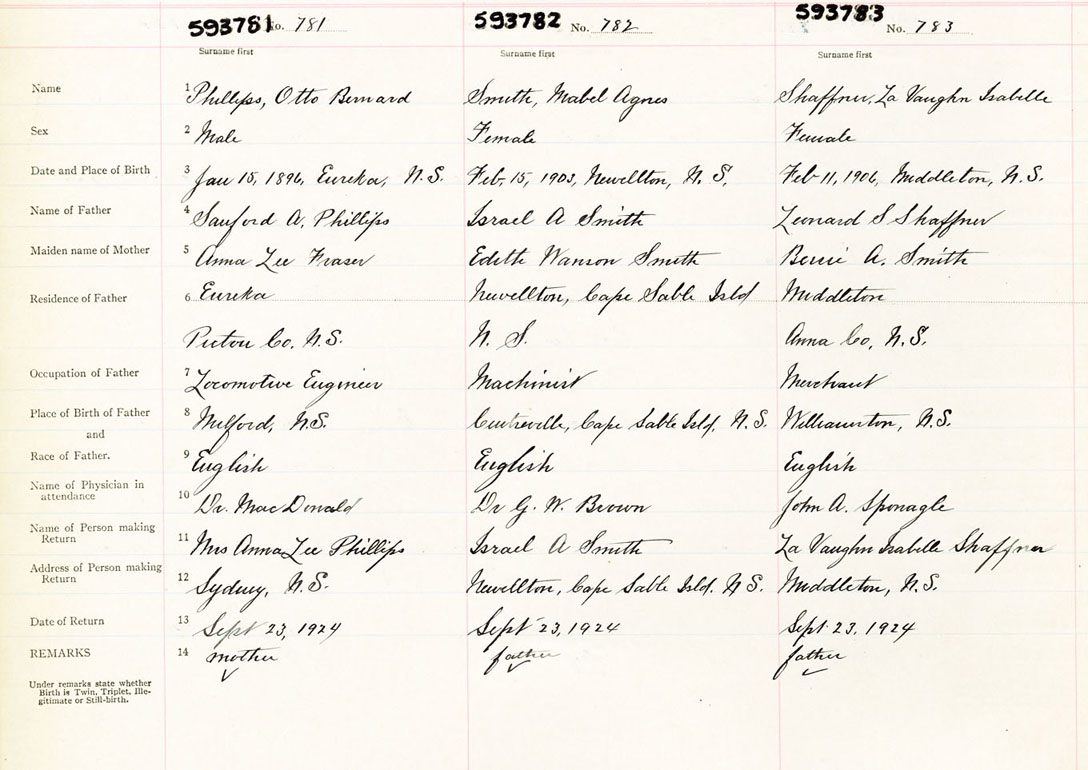 593781 No. 781 593782 No. 782 593783 No. 783
Surname first Surname first Surname first
Name 1 Phillips, Otto Bernard Smith, Mabel Agnes Shaffner, La Vaughn Isabelle
Sex 2 Male Female Female
Date and Place of Birth 3 Jan 15, 1896, Eureka, N.S. Feb, 15, 1903, Newellton, N. S. Feb 11, 1906, Middleton, N.S.
Name of Father 4 Sanford A, Phillips Israel A Smith Leonard S Shaffner
Maiden name of Mother 5 Anna Lee Fraser Edith Smith A. Smith
Residence of Father 6 Eureka Newellton, Cape Sable Isld Middleton
Pictou Co, N.S. N. S. Anna Co, N.S.
Occupation of Father 7 Locomotive Engineer Machinist Merchant
Place of Birth of Father 8 Milford, N.S. Centreville, Cape Sable Isld. N.S. Williamston, N.S.
and
Race of Father. 9 English English English
Name of Physician in
attendance 10 Dr. MacDonald Dr G. W. Brown John A. Sponagle
Name of Person making
Return 11 Mrs Anna Lee Phillips Israel A Smith La Vaughn Isabelle Shaffner
Address of Person making
Return 12 Sydney, N.S. Newellton, Cape Sable Isld. N S. Middleton, N.S.
Date of Return 13 Sept 23, 1924 Sept 23, 1924 Sept. 23, 1924
REMARKS 14 mother father father
Under remarks state whether
Birth is Twin, Triplet, Ille-
gitimate or Still-birth.